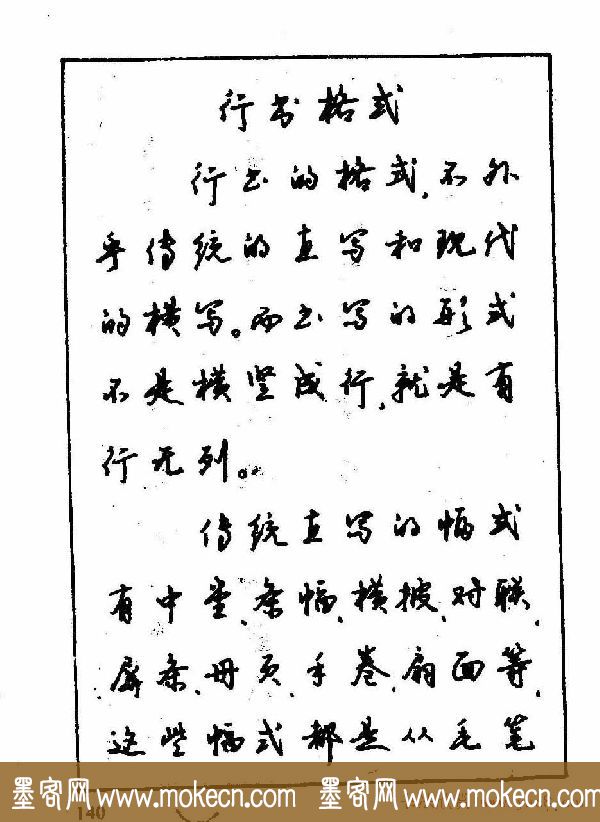 行书格式
行书的格式,不外
乎传统的直写和现代
的横写。而书写的形式
不是横竖成行,就是有
行无列。
传统直写的幅式
有中堂、条幅、横披、对联、
屏条、册页、手卷、扇面等,
这些幅式都是从毛笔
墨客网 www.mokecn.com 墨客网 www.mokecn.com
140